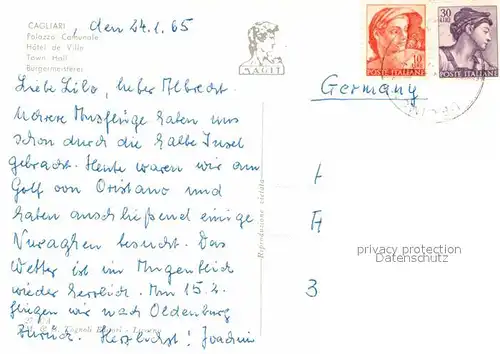 CAGLIARI , den 24.1.65
Palazzo Comunale
Hôtel de Ville
Town Hall
Burgermesteres
MAGIT
10
POSTE ITALIANE
30
POSTE ITALIANE
Germany
Liebe Lilo, lieber Albrecht.
Unsere Ausflüge haben uns
schon durch die halbe Insel
gebracht. Heute waren wir am
Golf von Oristano und
haben anschließend einige
Nuraghen besucht. Das
Wetter ist im Augenblick
wieder herrlich. Am 15.2.
fliegen wir nach Oldenburg
zurück. Herzlichst! Joachim
Riproduzione vietata
privacy protection
Datenschutz
3